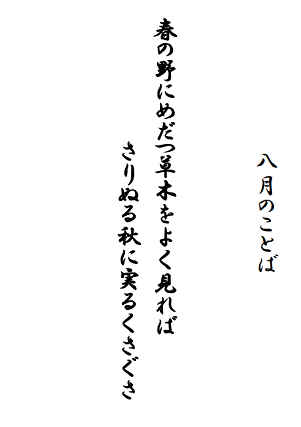 八月のことば
春の野にめだつ草木をよく見れば
さりぬる秋に実るくさぐさ